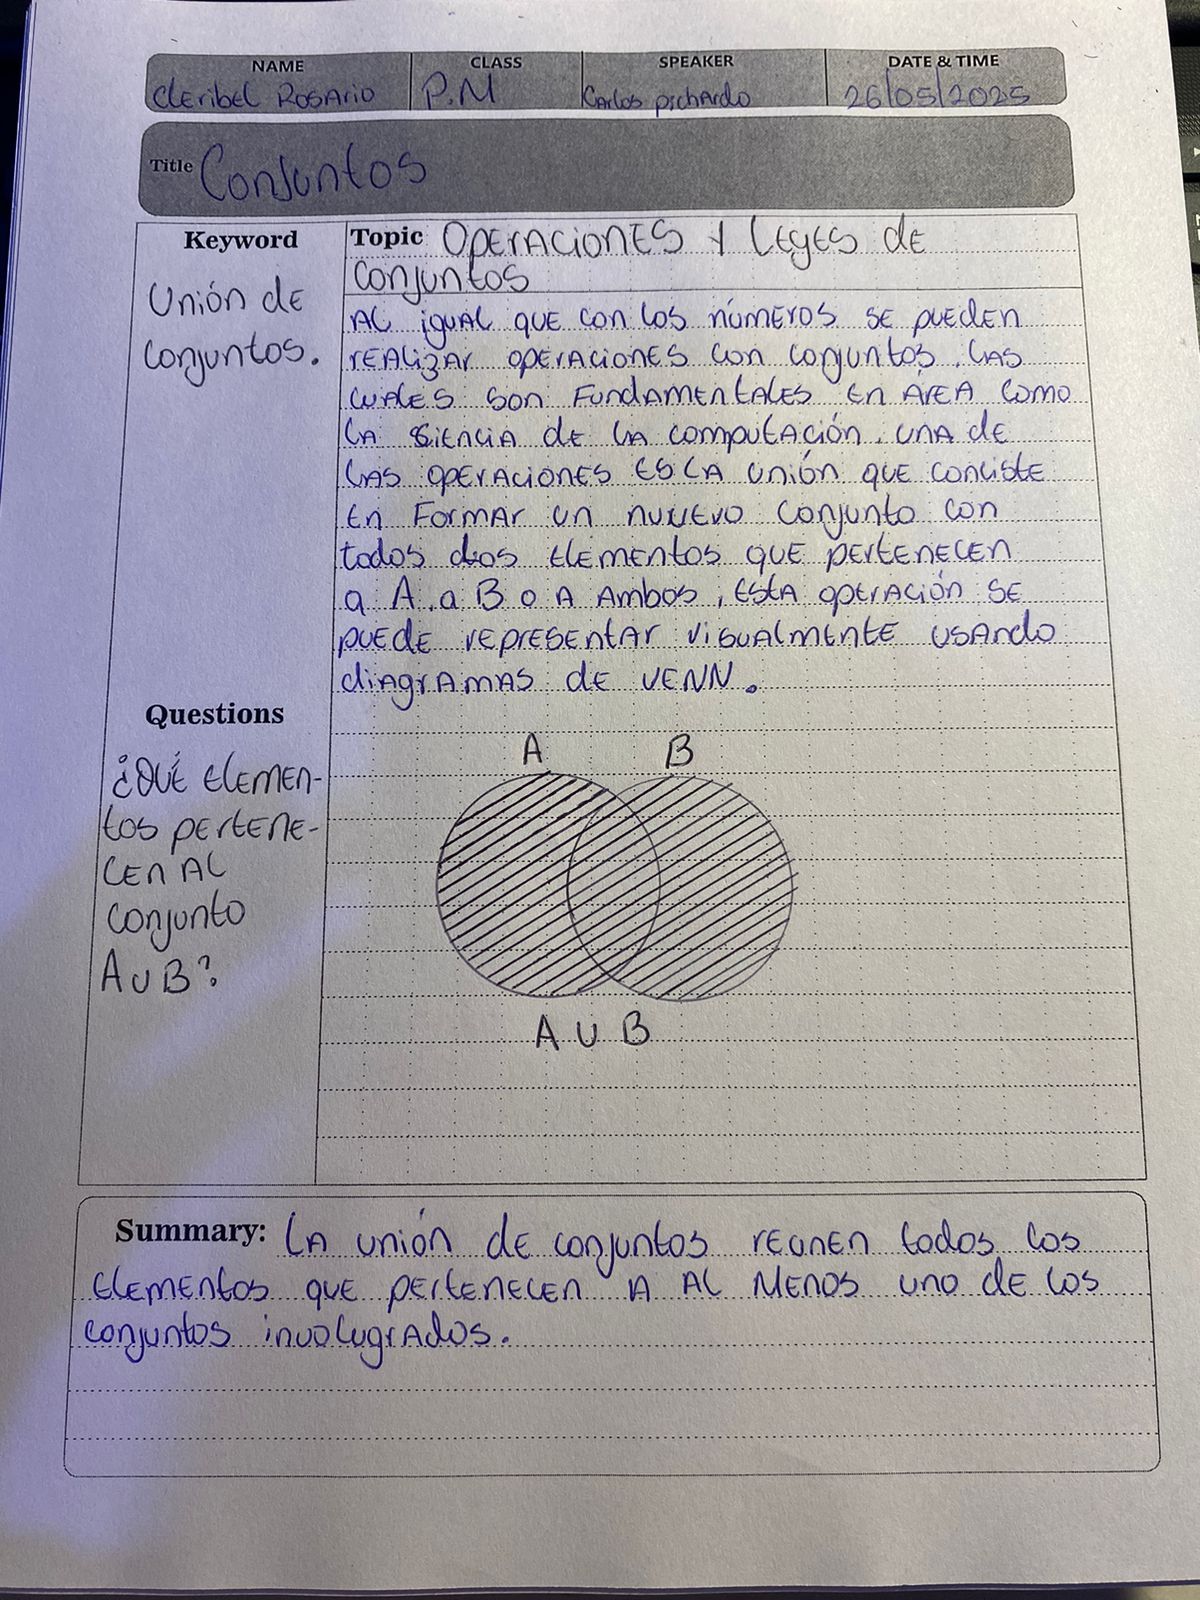 NAME CLASS SPEAKER DATE & TIME
Cleribel Rosario P.M Carlos pichardo 26/05/2025
Title Conjuntos
Keyword
Unión de
conjuntos.
Topic Operaciones y Leyes de
conjuntos
Al igual que con los números se pueden
realizar operaciones con conjuntos. Las
cuales son fundamentales en área como
la siencia de la computación. una de
las operaciones es la unión que conciste
en formar un nuevo conjunto con
todos los elementos que pertenecen
a A, a B o a ambos, esta operación se
puede representar visualmente usando
diagramas de VENN.
Questions
¿Qué elemen-
tos pertene-
cen al
conjunto
A U B?
A B
A U B
Summary: La unión de conjuntos reunen todos los
elementos que pertenecen a al menos uno de los
conjuntos involugrados.